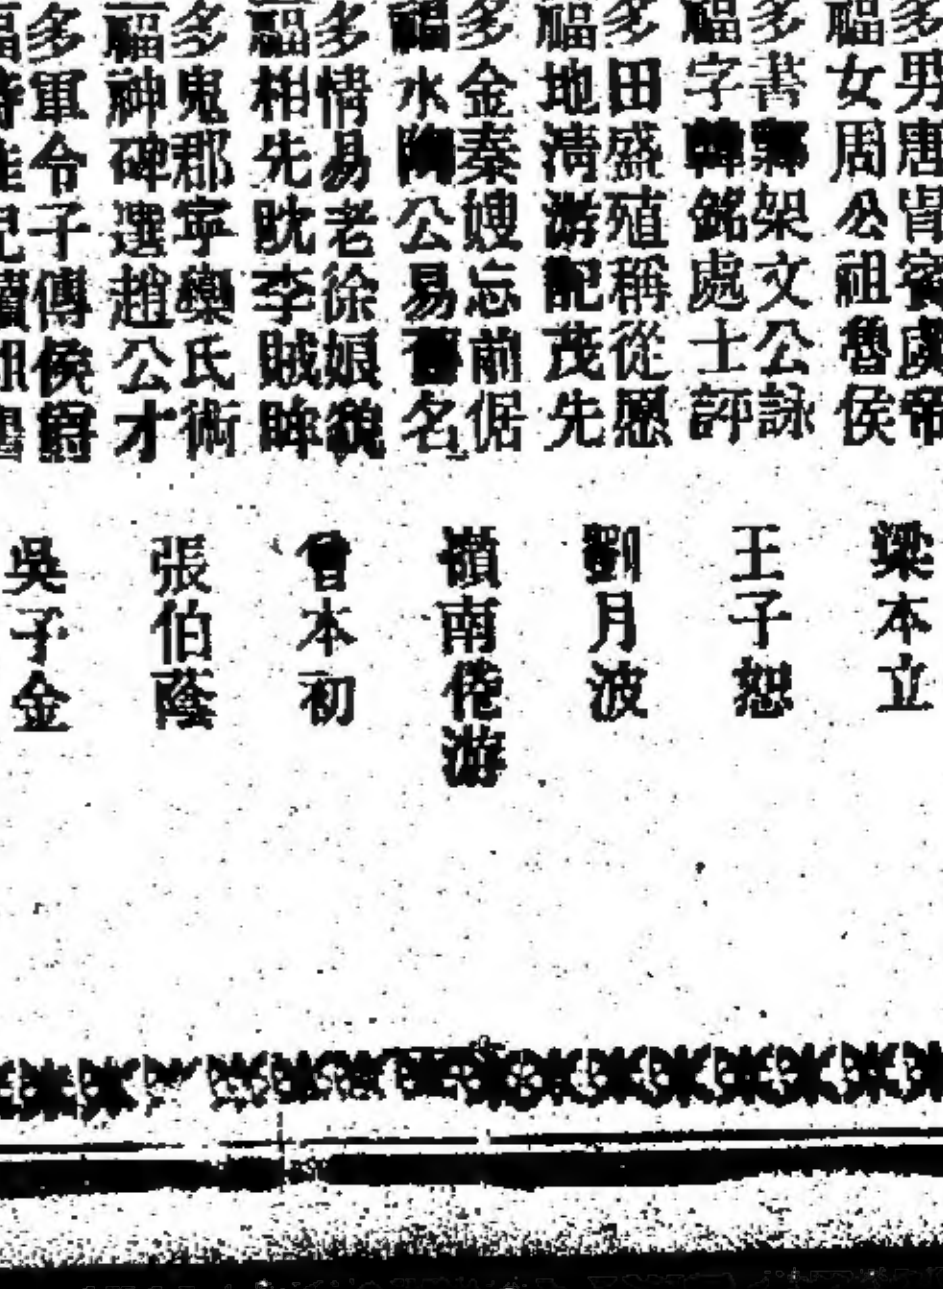 多男唐胄賓虞帝
福女周公祖魯侯
梁本立
多書鄴架文公詠
福字韓銘處士評
王子恕
多田盛殖稱從愿
福地清游記茂先
劉月波
多金秦嫂忘前倨
福水陶公易舊名
嶺南倦游
多情易老徐娘貌
福相先眈李賊眸
曾本初
多鬼郡寧欒氏術
福神碑選趙公才
張伯蔭
多軍令子傳侯爵
福
吳子金